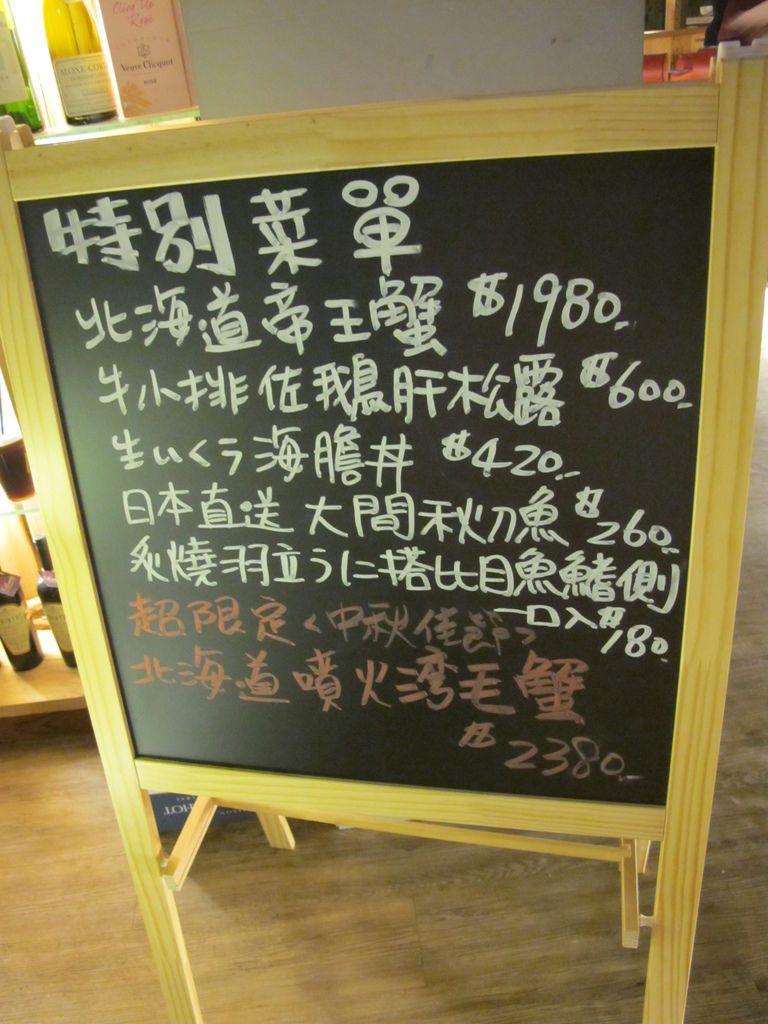 Cling Up
Rosé
Veuve Clicquot
ALOXE-COR
特別菜單
北海道帝王蟹 $1980.-
牛小排佐鵝肝松露 $600.-
生いくら海膽丼 $420.-
日本直送大間秋刀魚 $260.-
炙燒羽立うに搭比目魚鰭側
一口入 $180.
超限定<中秋佳節>
北海道噴火湾毛蟹
$2380.-
HOT